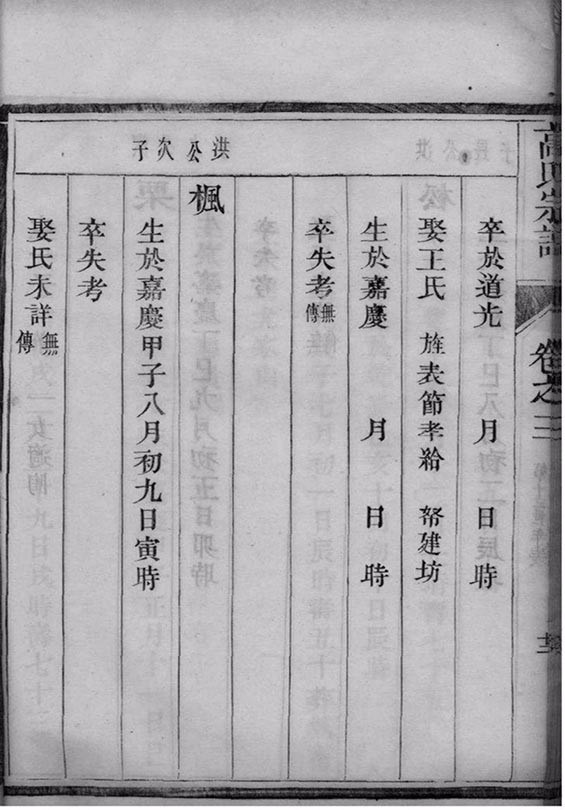 卷之三
卒於道光 月 日 時
娶王氏 旌表節孝給 帑建坊
生於嘉慶 月 日 時
卒失考 無傳
洪公次子
楓
生於嘉慶甲子八月初九日寅時
卒失考
娶氏未詳 無傳